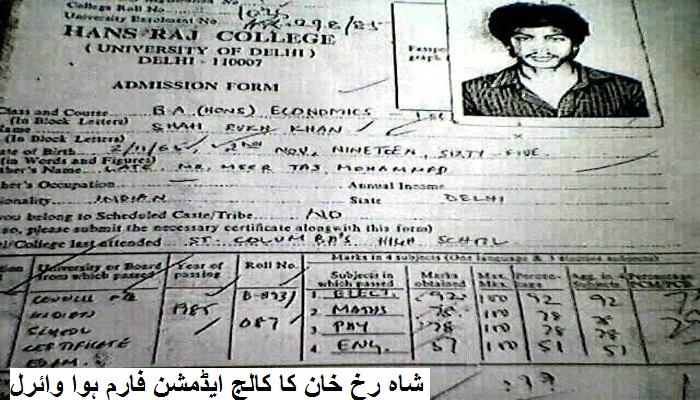 College Roll No.
University Enrolment No.
HANS RAJ COLLEGE
( UNIVERSITY OF DELHI )
DELHI - 110007
ADMISSION FORM
Class and Course B.A (HONS) ECONOMICS
(In Block Letters)
Name SHAH RUKH KHAN
(In Block Letters)
ate of Birth 2/11/65, 2ND NOV, NINETEEN, SIXTY-FIVE.
(in Words and Figures)
ther's Name LATE MR. MEER TAJ MOHAMMAD
her's Occupation — Annual Income
ionality INDIAN State DELHI
you belong to Scheduled Caste/Tribe NO
so, please submit the necessary certificate alongwith this form)
l/College last attended ST. COLUMBA'S HIGH SCHOOL
University or Board from which passed
Year of passing
Roll No.
Marks in 4 subjects (One language & 3 elective subjects)
Subjects in which passed
Marks obtained
Max. Mks.
Percentage
Agg. in 4 Subjects
Percentage
INDIAN SCHOOL CERTIFICATE EXAM.
1985
087
1 ELECT. 92 100 92 92
2 MATHS 78 100 78 78
3 PHY 78 100 78 78
4 ENG. 51 100 51 51
شاہ رخ خان کا کالج ایڈمشن فارم ہوا وائرل